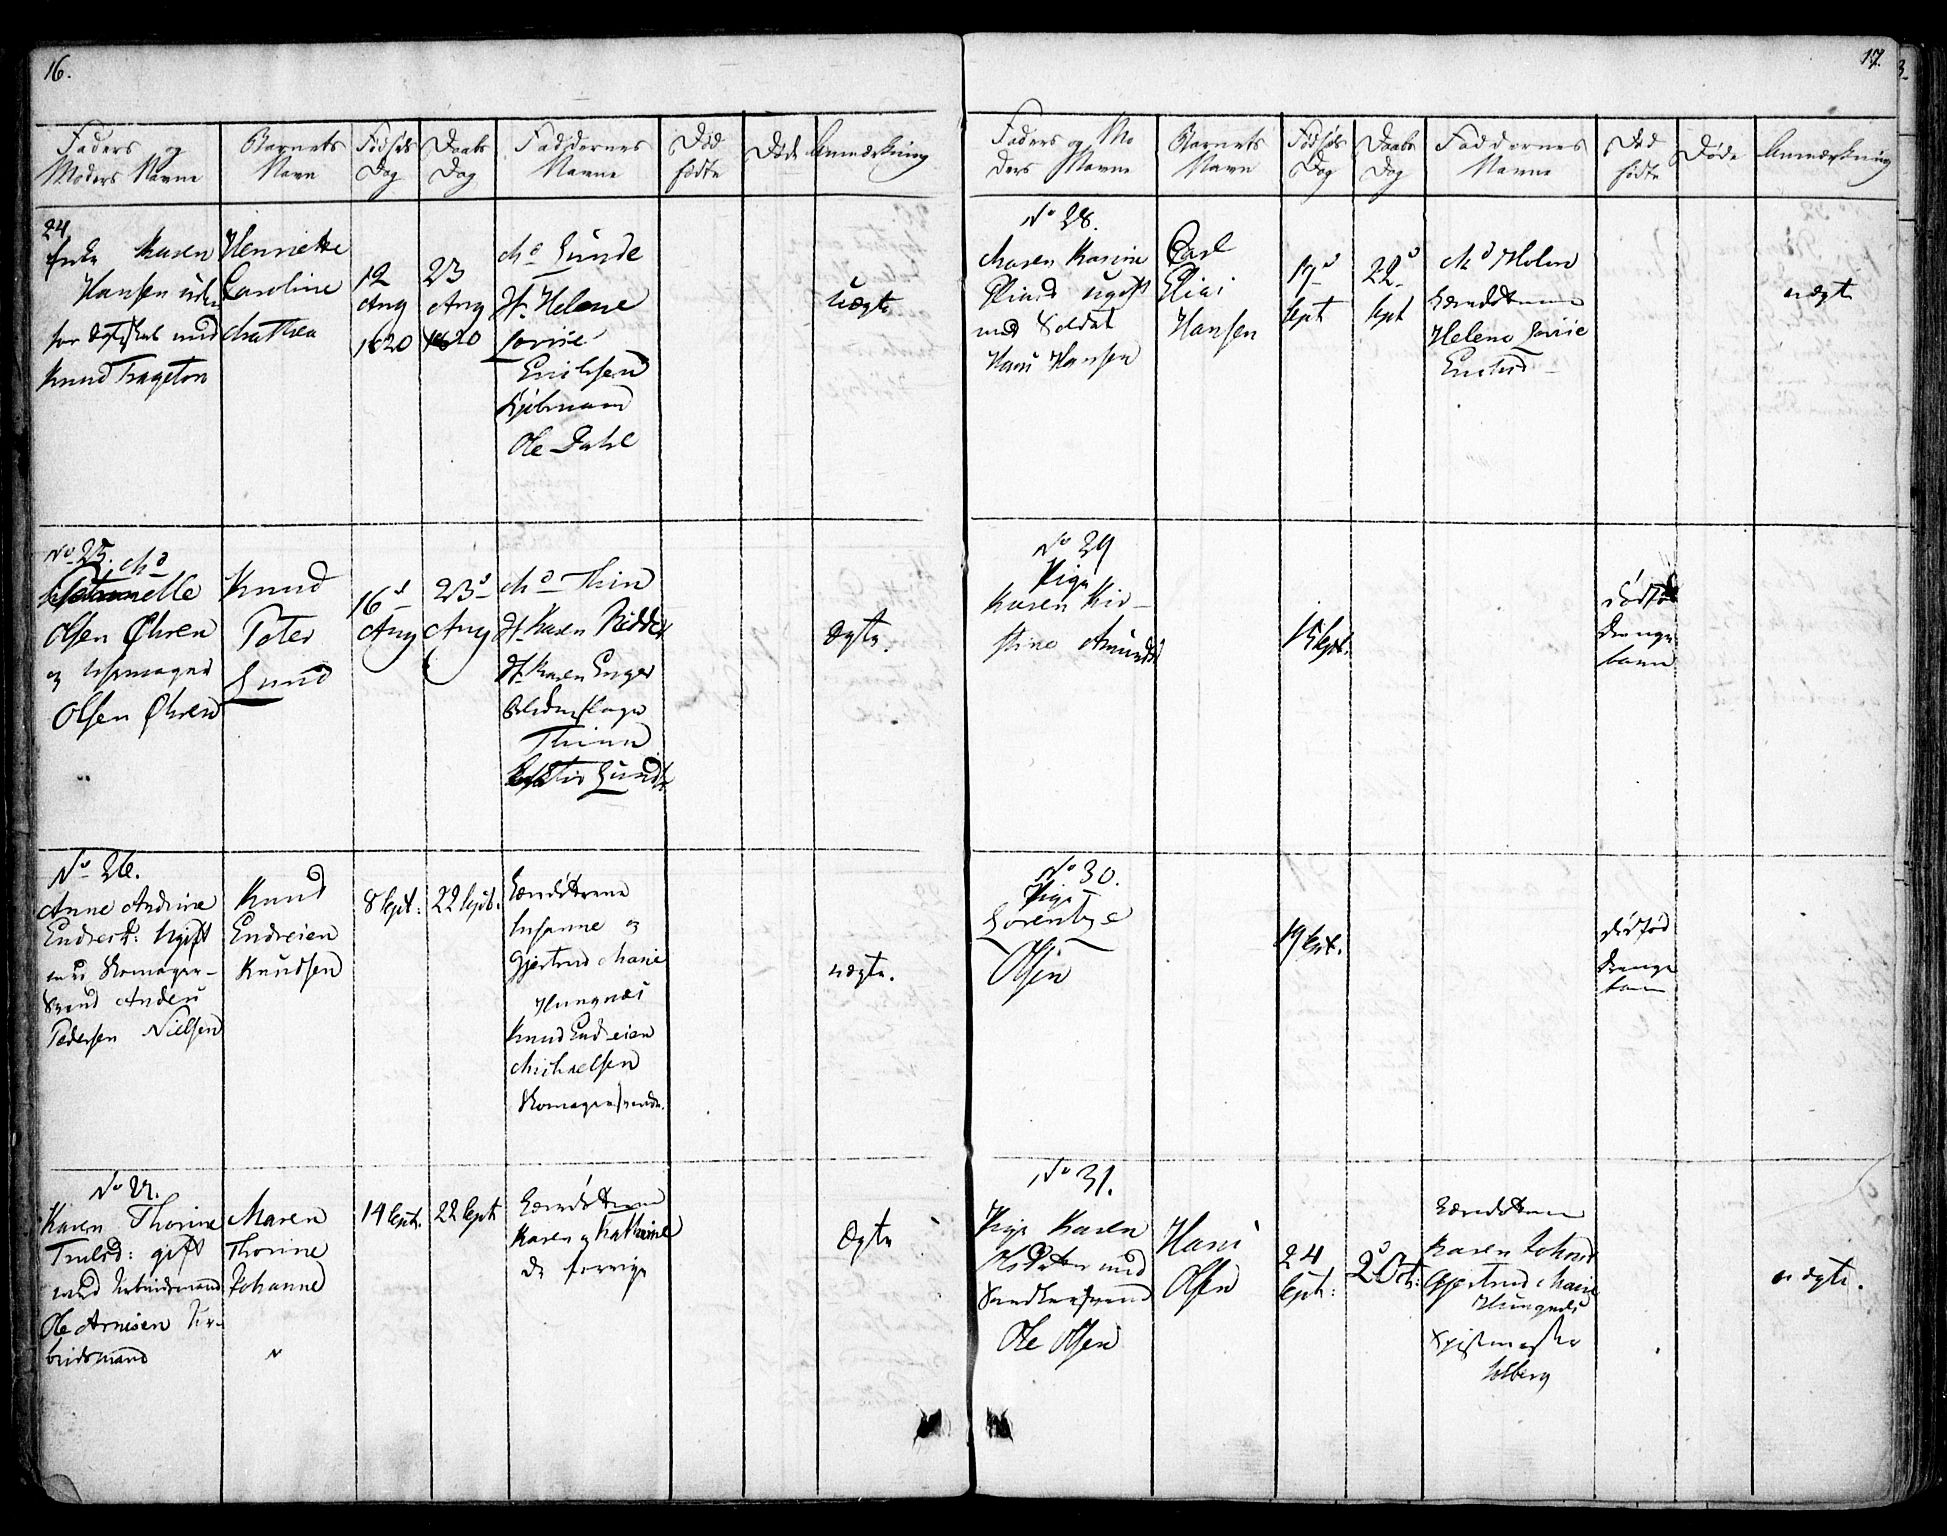 16.
Faders og
Moders Navne
Barnets
Navn
Fødsels
Dag
Daabs
Dag
Faddernes
Navne
Død
fødte
Døde
Anmærkning
24.
Enke Karen
Hansen uden
for Ægteskab med
Knud Trageton
Henriette
Caroline
Mathea
12
Aug
1820
23
Aug
1820
Md Lunde
Jf. Helene
Lovise
Erichsen
Kjøbmand
Ole Dahl
uægte
No 25. Md
Olsen Øhren
og
Olsen Øhren
Knud
Peter
Lund
16d
Aug
23d
Aug
Md Thin
Jf. Karen Ridder
Jf. Karen Enger
Thinn
Lundt
Ægte.
No 26.
Anne Andrine
Endresd: Ugift
med Skomager-
Svend Anders
Pedersen Nielsen
Knud
Endreien
Knudsen
8 Sept:
22 Sept.
Susanne og
Gjertrud Marie
Hungnes
Knud Endreien
Michaelsen
Skomagersvende.
uægte.
No 27.
Karen Thorine
Trulsd: gift
med Arbeidsmand
Ole Arnesen Ar-
beidsmand
Maren
Thorine
Johanne
14 Sept.
22 Sept
Karen og Kathrine
de forrige
Ægte
17.
Faders og Mo
ders Navne
Barnets
Navn
Fødsels
Dag
Daabs
Dag
Faddernes
Navne
Død
fødte
Døde
Anmærkning
No 28.
Maren Karine
Eliasd ugift
med Soldat
Hans Hansen
Carl
Elias
Hansen
17d
Sept
22d
Sept
Md Holm
Helene Lovise
uægte
No 29
Pige
Karen Kir-
stine Amundsd
15 Sept.
dødfød
Drenge
barn
No 30.
Pige
Lorentze
Olsen
19 Sept.
dødfød
Drenge
barn
No 31.
Pige Karen
med
Snedkersvend
Ole Olsen
Hans
Olsen
24
Sept:
2d Oct:
Karen Johnsd
Gjertrud Marie
Hungnes
Spisemester
Solberg
uægte.